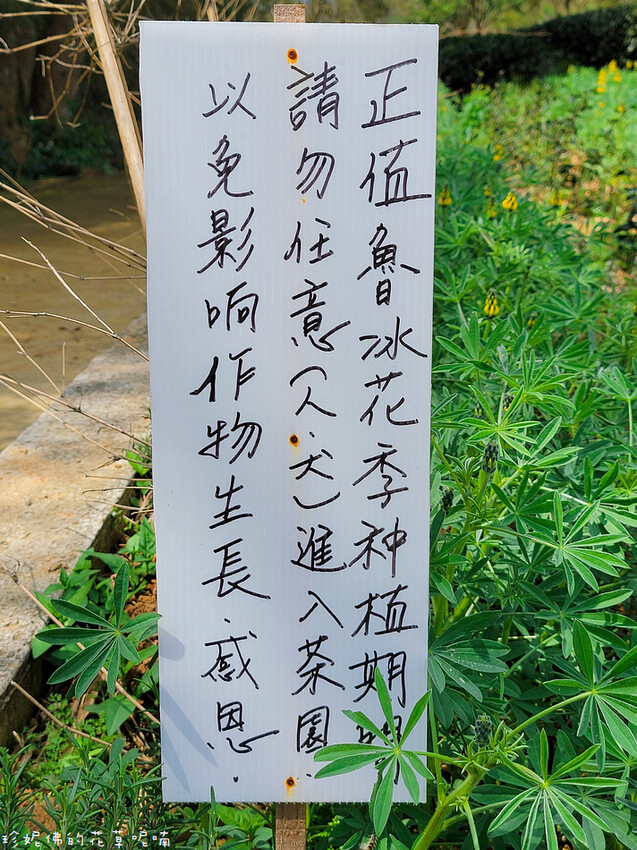 正值魯冰花季种植期
請勿任意(人.犬)進入茶園
以免影响作物生長.感恩.
珍妮佛的花草呢喃